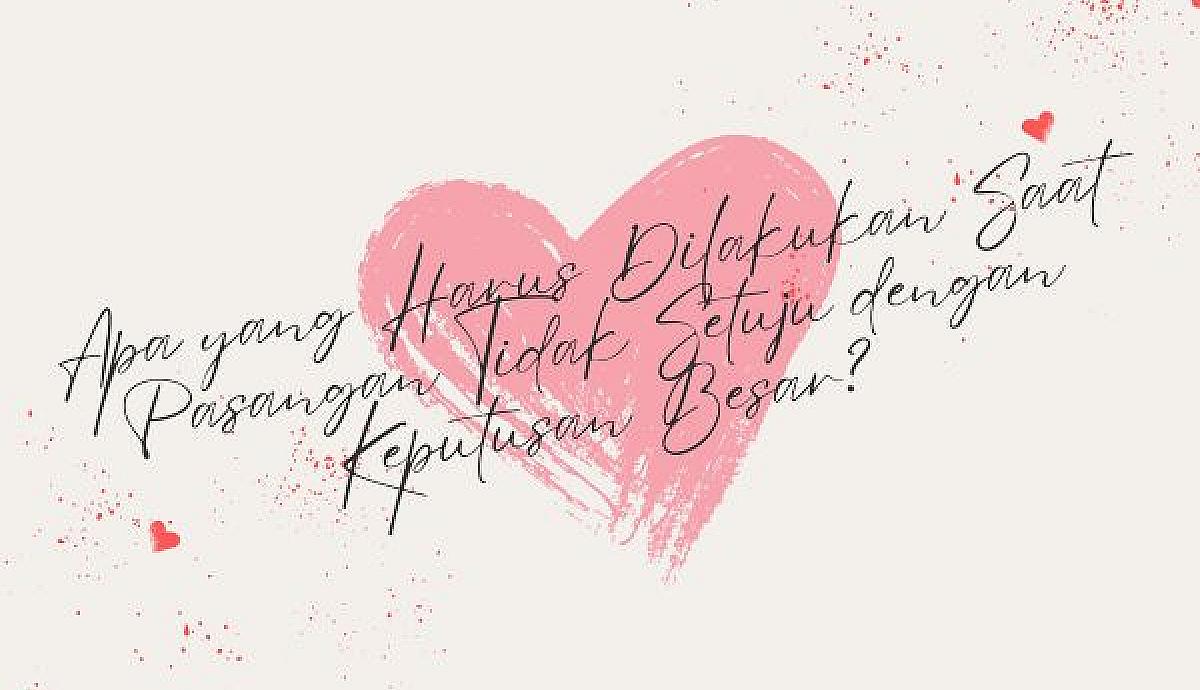 Apa yang Harus Dilakukan Saat
Pasangan Tidak Setuju dengan
Keputusan Besar?